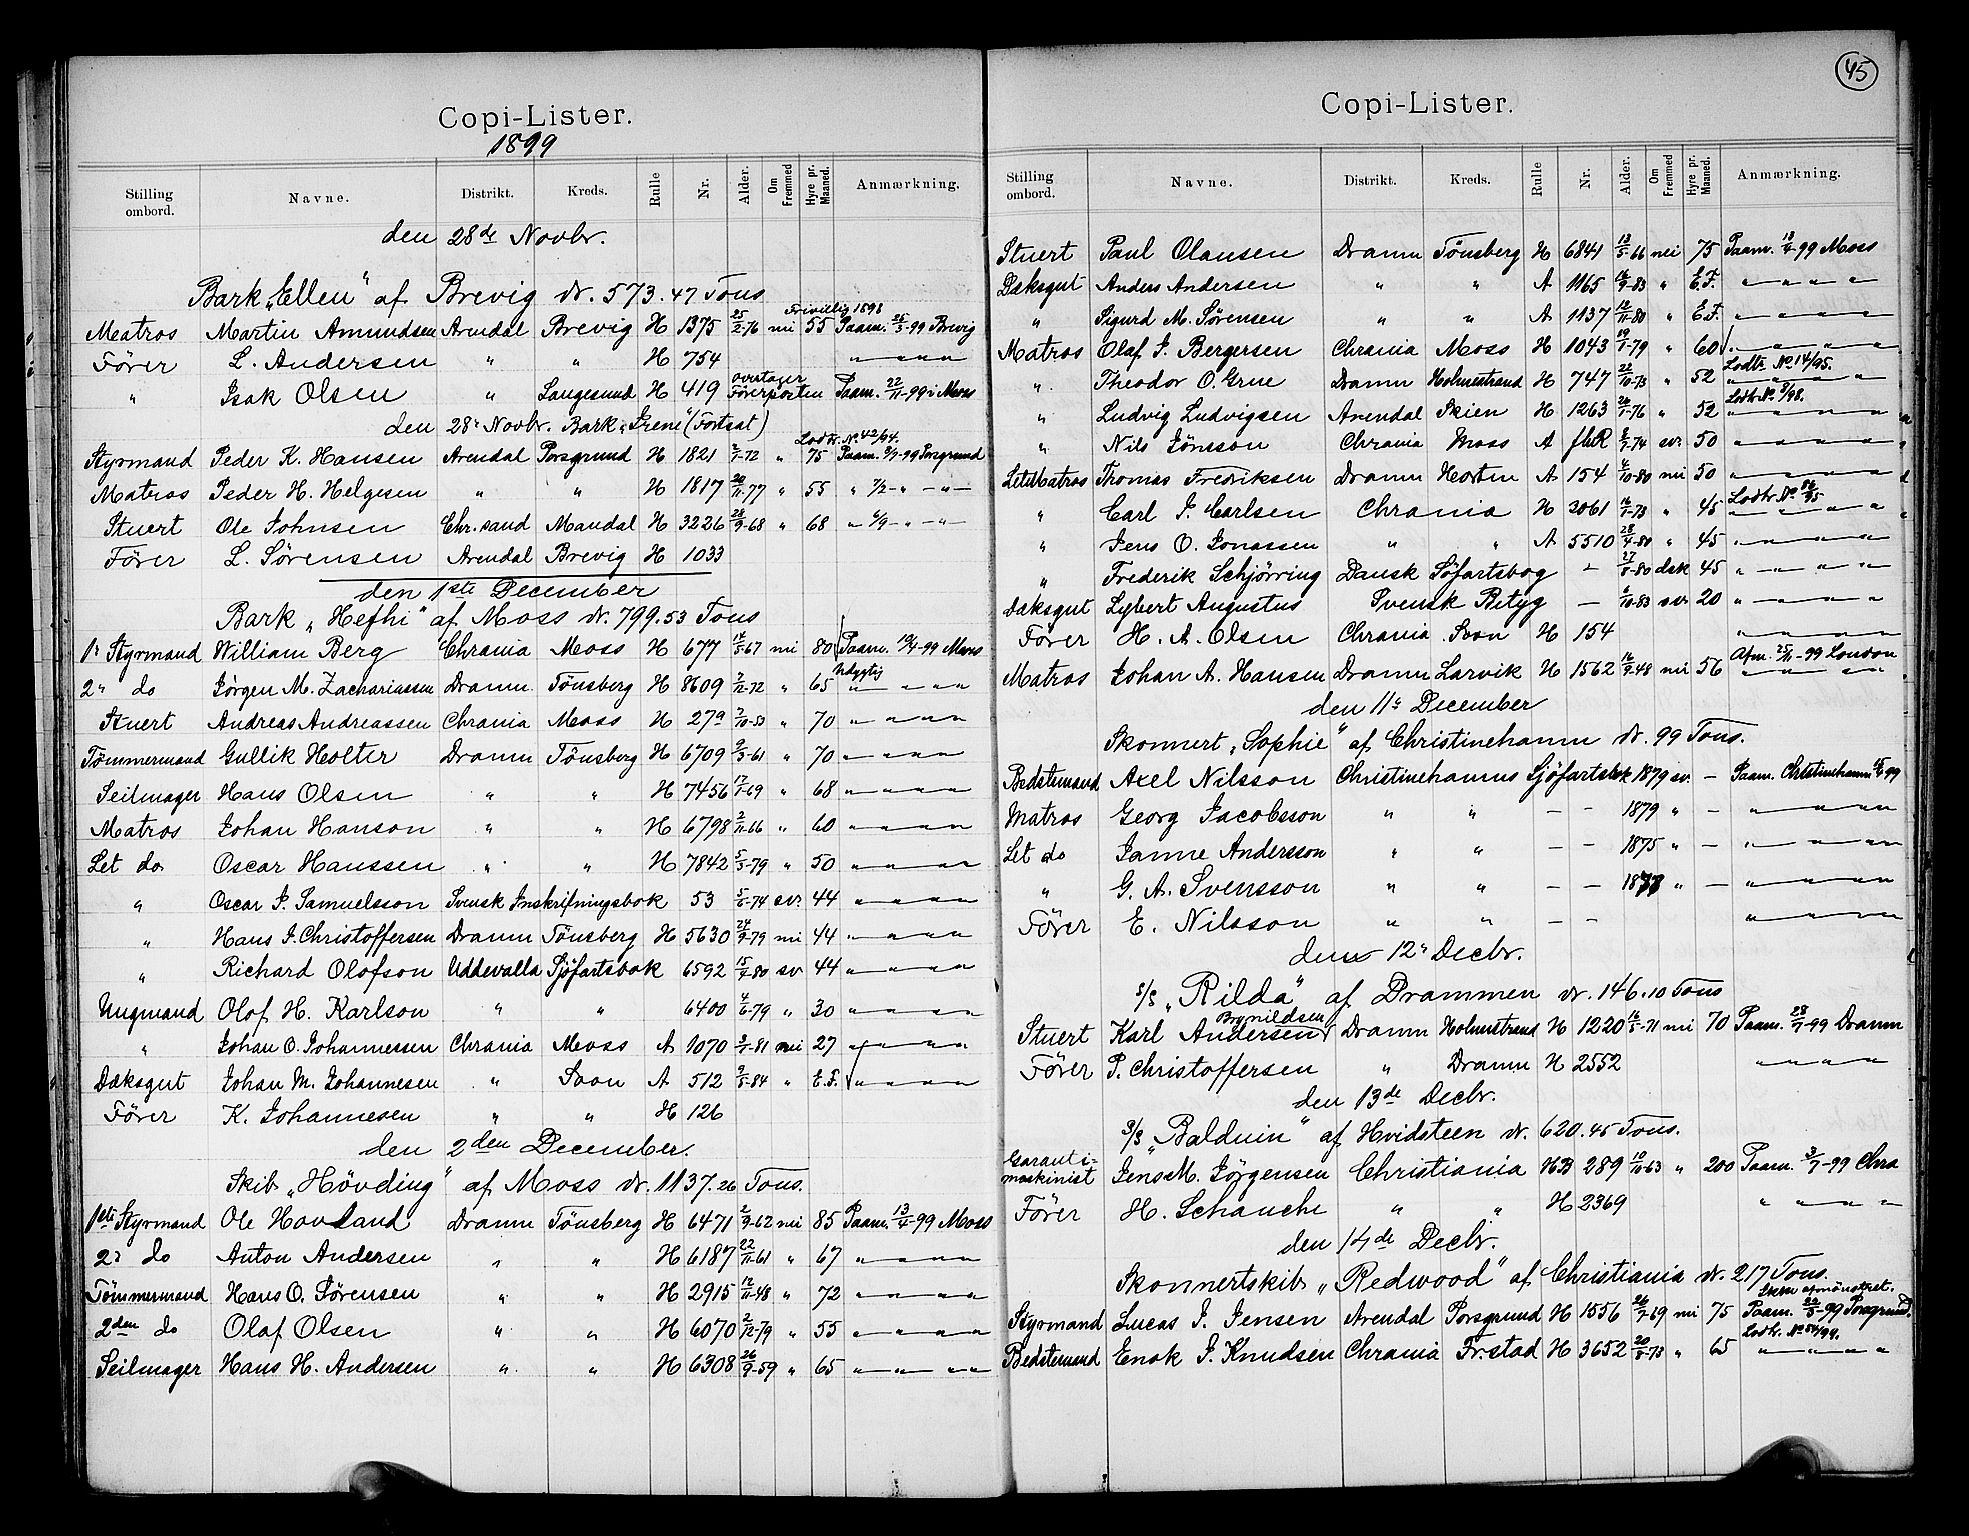 Copi-Lister.
1899
Stilling ombord. Navne. Distrikt. Kreds. Rulle Nr. Alder. Om Fremmed Hyre pr. Maaned. Anmærkning.
den 28de Novbr.
Bark „Ellen" af Brevig dr. 573.47 Tons
Frivillig 1898
Matros Martin Amundsen Arendal Brevig H 1375 25/2-76 nei 55 Paam. 25/3-99 Brevig
Förer L. Andersen " " H 754 " " " "
" Isak Olsen " Langesund H 419 overtager Förerposten Paam. 22/11-99 i Moss
den 28" Novbr. Bark „Irene" (Fortsat)
Lodtr. No. 42/94.
Styrmand Peder K. Hansen Arendal Porsgrund H 1821 2/1-72 " 75 Paam. 2/9-99 Porsgrund
Matros Peder H. Helgesen " " H 1817 20/11-77 " 55 " 7/2 - " - " -
Stuert Ole Johnsen Chr.sand Mandal H 3226 28/9-68 " 68 " 6/9 - " - " -
Förer L. Sørensen Arendal Brevig H 1033
den 1ste December
Bark „Hefhi" af Moss dr. 799.53 Tons
1" Styrmand William Berg Chrania Moss H 677 14/5-67 nei 80 Paam. 12/4-99 Moss
Udygtig
2" do Jørgen M. Zachariassen Dramn Tönsberg H 8609 2/12-72 " 65 " " " "
Stuert Andreas Andreassen Chrania Moss H 279 2/10-53 " 70 " " " "
Tömmermand Gullik Holter Dramn Tönsberg H 6709 9/3-61 " 70 " " " "
Seilmager Hans Olsen " " H 7456 17/1-69 " 68 " " " "
Matros Johan Hanson " " H 6798 2/11-66 " 60 " " " "
Let do Oscar Hanssen " " H 7842 5/3-79 " 50 " " " "
" Oscar J. Samuelsson Svensk Inskrifningsbok 53 5/5-74 sv. 44 " " " "
" Hans J. Christoffersen Dramn Tönsberg H 5630 24/9-79 nei 44 " " " "
" Richard Olofson Uddevalla Sjöfartsbok 6592 15/9-80 sv 44 " " " "
Ungmand Olof H. Karlson " " 6400 4/6-79 " 30 " " " "
" Johan O. Johannessen Chrania Moss A 1070 3/1-81 nei 27 " " " "
Dæksgut Johan M. Johannesen " Soon A 512 9/5-84 " E.F. " " " "
Förer K. Johannesen " " H 126
den 2den December.
Skib „Hövding" af Moss dr. 1137.26 Tons.
1ste Styrmand Ole Hovland Dramn Tönsberg H 6471 2/9-62 nei 85 Paam. 13/4-99 Moss
2" do Anton Andersen " " H 6187 22/11-61 " 67 " " " "
Tömmermand Hans O. Sørensen " " H 2915 12/11-48 " 72 " " " "
2den do Olaf Olsen " " H 6070 2/12-79 " 55 " " " "
Seilmager Hans H. Andersen " " H 6308 26/9-59 " 65 " " " "
45
Copi-Lister.
Stilling ombord. Navne. Distrikt. Kreds. Rulle Nr. Alder. Om Fremmed Hyre pr. Maaned. Anmærkning.
Stuert Paul Olausen Dramn Tönsberg H 6841 13/5-66 nei 75 Paam. 13/4-99 Moss
Dæksgut Anders Andersen " " A 1165 16/9-83 " E.F. " " " "
" Sigurd M. Sørensen " " A 1137 12/11-80 " E.F. " " " "
Matros Olaf J. Bergersen Chrania Moss H 1043 19/1-79 " 60 " " " "
Lodtr. No 14/95.
" Theodor O. Grue Dramn Holmestrand H 747 22/10-73 " 52 " " " "
Lodtr. No. 8/98.
" Ludvig Ludvigsen Arendal Skien H 1263 26/1-76 " 52 " " " "
" Nils Jönsson Chrania Moss A fhR 8/7-74 sv. 50 " " " "
LetMatros Thomas Fredriksen Dramn Horten A 154 4/10-80 nei 50 " " " "
Lodtr No. 86/95
" Carl J. Carlsen Chrania H 2061 16/1-73 " 45 " " " "
" Jens O. Jonassen " " A 5510 28/4-80 " 45 " " " "
" Frederik Schjörring Dansk Söfartsbog - 27/8-80 dsk 45 " " " "
Dæksgut Lybert Augustus Svensk Betyg - 6/10-83 sv. 20 " " " "
Förer H. A. Olsen Chrania Soon H 154 " " " "
Afm. 25/11-99 London
Matros Johan A. Hansen Dramn Larvik H 1562 16/9-48 nei 56 " " " "
den 11" December
Skonnert „Sophie" af Christinehamn dr. 99 Tons.
Bedstemand Axel Nilsson Christinehamns Sjöfartsbok 1879 sv. - Paam. Christinehamn 99
Matros Georg Jacobsson " " - - 1879 " - " " " "
Let do Janne Andersson " " - - 1875 " - " " " "
" G. A. Svensson " " - - 1877 " - " " " "
Förer E. Nilsson " " - - " " " "
den 12" Decbr.
s/s „Rilda" af Drammen dr. 146.10 Tons
Brynildsen
Stuert Karl Andersen Dramn Holmestrand H 1220 16/5-71 nei 70 Paam. 28/7-99 Dramn
Förer P. Christoffersen " Dramn H 2552 " " " "
den 13de Decbr.
S/S „Balduin" af Hvidsteen dr. 620.45 Tons.
Garantimaskinist Jens M. Jörgensen Christiania HB 289 10/10-63 " 200 Paam. 3/7-99 Chra
Förer H. Schanche " " H 2369 " " " "
den 14de Decbr.
Skonnertskib „Redwood" af Christiania dr. 217 Tons.
afmönstret.
Styrmand Lucas J. Jensen Arendal Porsgrund H 1556 26/7-69 nei 75 Paam. 22/3-99 Porsgrund.
Lodtr. No 54/94.
Bedstemand Enok J. Knudsen Chrania Fr.stad H 3652 20/8-73 " 65 " " " "